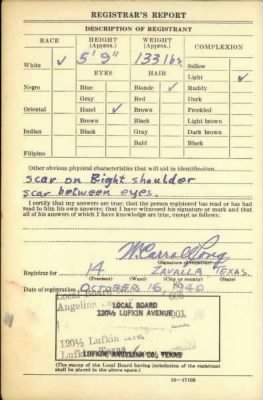 REGISTRAR'S REPORT
DESCRIPTION OF REGISTRANT
RACE HEIGHT (Approx.) WEIGHT (Approx.) COMPLEXION
White ✓ 5' 9" 133 lbs. Sallow
EYES HAIR Light ✓
Negro Blue Blonde ✓ Ruddy
Gray Red Dark
Oriental Hazel ✓ Brown Freckled
Brown Black Light brown
Indian Black Gray Dark brown
Bald Black
Filipino
Other obvious physical characteristics that will aid in identification
Scar on Right shoulder
scar between eyes.
I certify that my answers are true; that the person registered has read or has had read to him his own answers; that I have witnessed his signature or mark and that all of his answers of which I have knowledge are true, except as follows:
W. Carrol Long
(Signature of registrar)
Registrar for 14 ZAVALLA TEXAS.
(Precinct) (Ward) (City or county) (State)
Date of registration OCTOBER 16, 1940
Local Board
Angelina 003
LOCAL BOARD
120½ LUFKIN AVENUE 001
120½ Lufkin
Lufkin, Texas
LUFKIN, ANGELINA CO., TEXAS
(The stamp of the Local Board having jurisdiction of the registrant shall be placed in the above space.)
16—17105